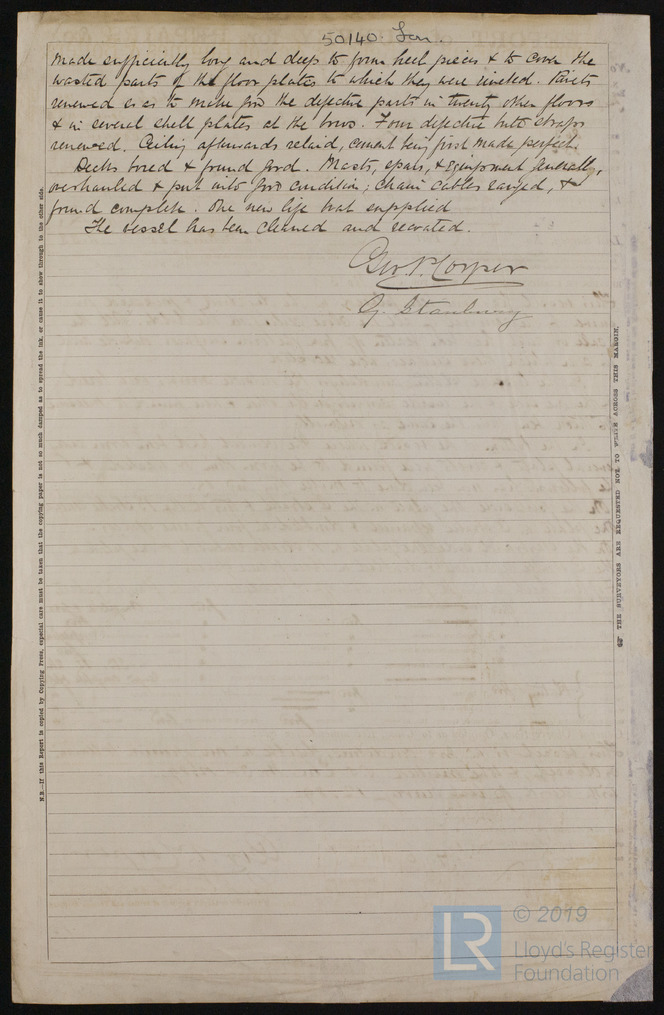 50140 Lon.
made sufficiently long and deep to form heel pieces & to cover the
wasted parts of the floor plates to which they were riveted. Rivets
renewed so as to make good the defective parts in twenty other floors
& in several shell plates at the bows. Four defective butt straps
renewed. Ceiling afterwards relaid, cement being first made perfect.
Decks bored & found good. Masts, spars, & Equipment generally,
overhauled & put into good condition; chain cables ranged, &
found complete. One new life boat supplied
The vessel has been cleaned and recoated.
Geo. P. Corper
G. Stanbury
N.B.—If this Report is copied by Copying Press, especial care must be taken that the copying paper is not so much damped as to spread the ink, or cause it to show through to the other side.
THE SURVEYORS ARE REQUESTED NOT TO WRITE ACROSS THIS MARGIN.
LR
© 2019
Lloyd's Register
Foundation